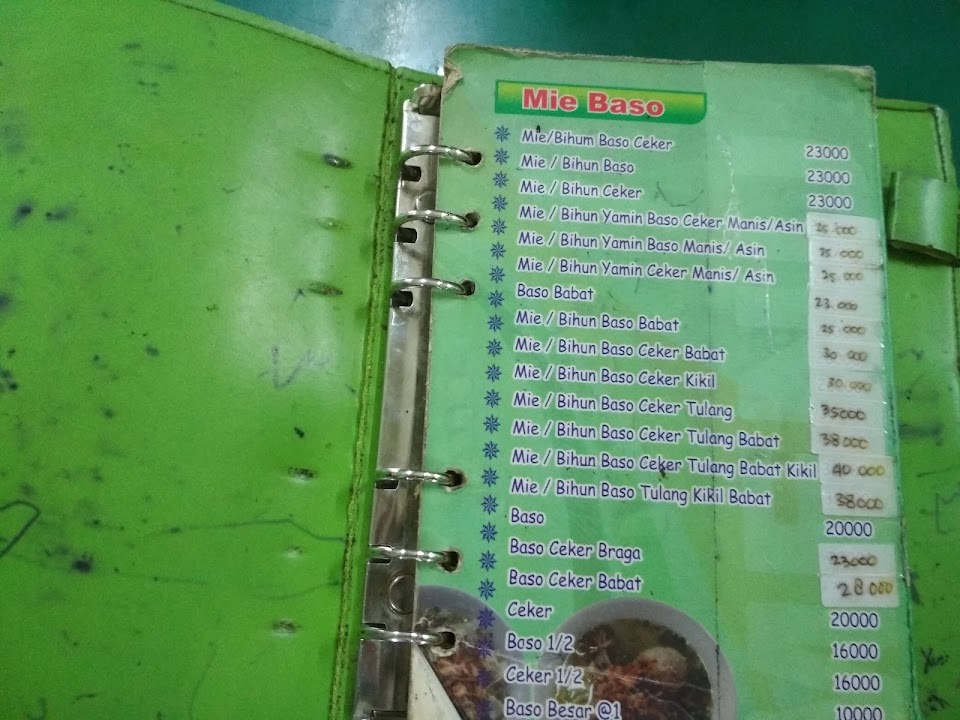 Mie Baso
Mie/Bihum Baso Ceker 23000
Mie / Bihun Baso 23000
Mie / Bihun Ceker 23000
Mie / Bihun Yamin Baso Ceker Manis/Asin 25.000
Mie / Bihun Yamin Baso Manis/ Asin 25.000
Mie / Bihun Yamin Ceker Manis/ Asin 25.000
Baso Babat 23.000
Mie / Bihun Baso Babat 25 000
Mie / Bihun Baso Ceker Babat 30 000
Mie / Bihun Baso Ceker Kikil 30.000
Mie / Bihun Baso Ceker Tulang 35000
Mie / Bihun Baso Ceker Tulang Babat 38000
Mie / Bihun Baso Ceker Tulang Babat Kikil 40 000
Mie / Bihun Baso Tulang KiKil Babat 38000
Baso 20000
Baso Ceker Braga 23000
Baso Ceker Babat 28 000
Ceker 20000
Baso 1/2 16000
Ceker 1/2 16000
Baso Besar @1 10000